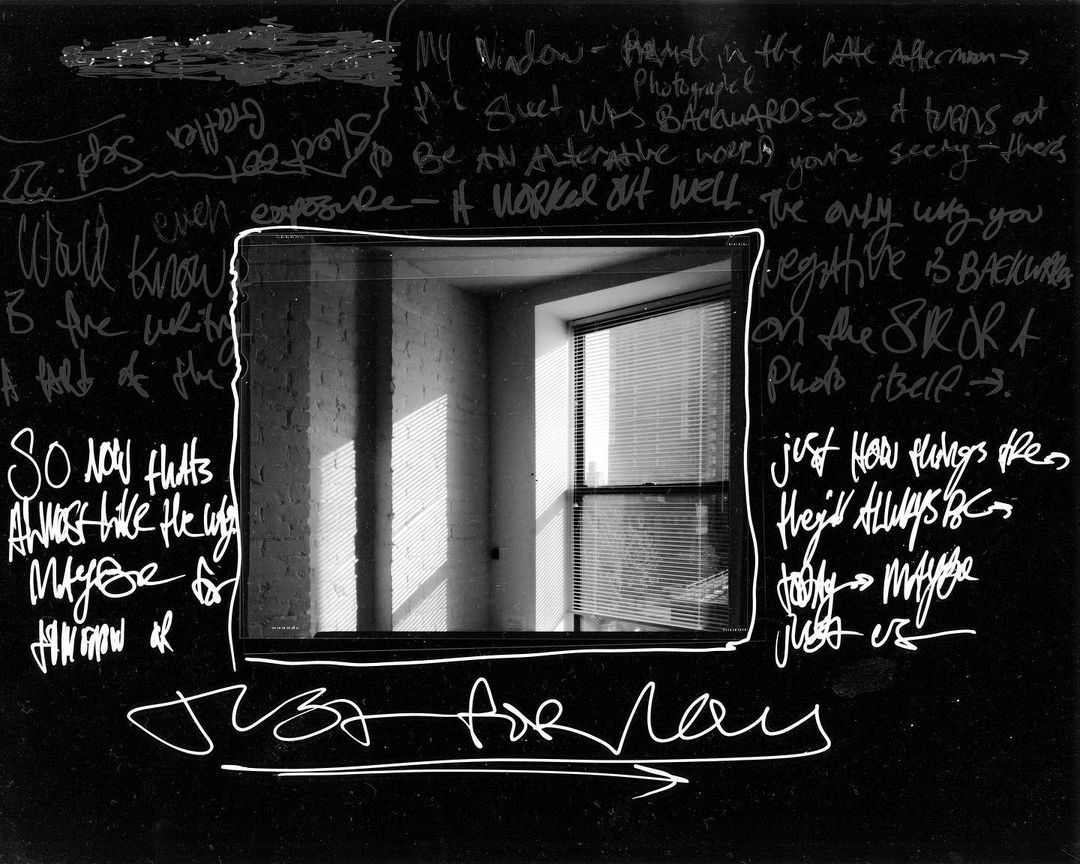 My Window - in the late Afternoon →
Photographed
the sheet was BACKWARDS - So it turns out
to Be AN Alternative world you're seeing - there's
Sept. 22
even exposure - it worked out well. The only way you
Would Know negative is BACKWARDS
is the writing on the SIDE OR A
A part of the Photo itself →.
SO NOW thats just HOW things Are →
ALMOST like the way they'll ALWAYS BE →
MAYBE for today → MAYBE
tomorrow or just us
JUST FOR NOW